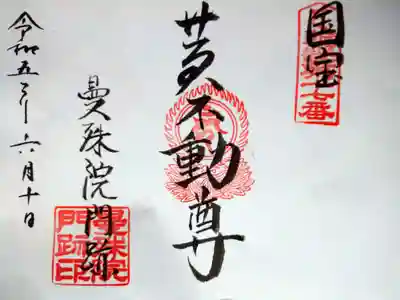 国宝
十七番
黄不動尊
曼殊院門跡
曼殊院
門跡印
令和五年六月十日